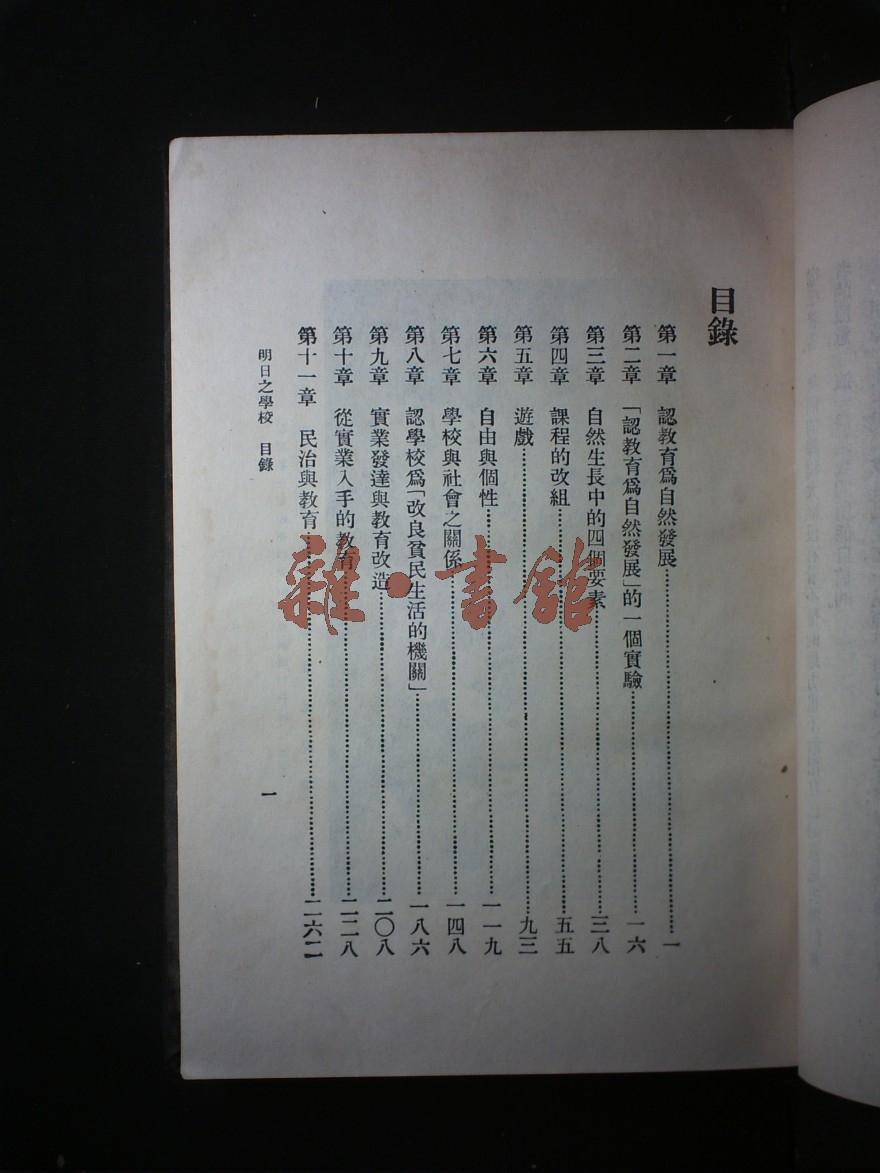 目錄
第一章 認教育爲自然發展⋯⋯一
第二章 「認教育爲自然發展」的一個實驗⋯⋯一六
第三章 自然生長中的四個要素⋯⋯三八
第四章 課程的改組⋯⋯五五
第五章 遊戲⋯⋯九三
第六章 自由與個性⋯⋯一一九
第七章 學校與社會之關係⋯⋯一四八
第八章 認學校爲「改良貧民生活的機關」⋯⋯一八六
第九章 實業發達與教育改造⋯⋯二〇八
第十章 從實業入手的教育⋯⋯二二八
第十一章 民治與教育⋯⋯二六二
明日之學校 目錄
一
雜·書館